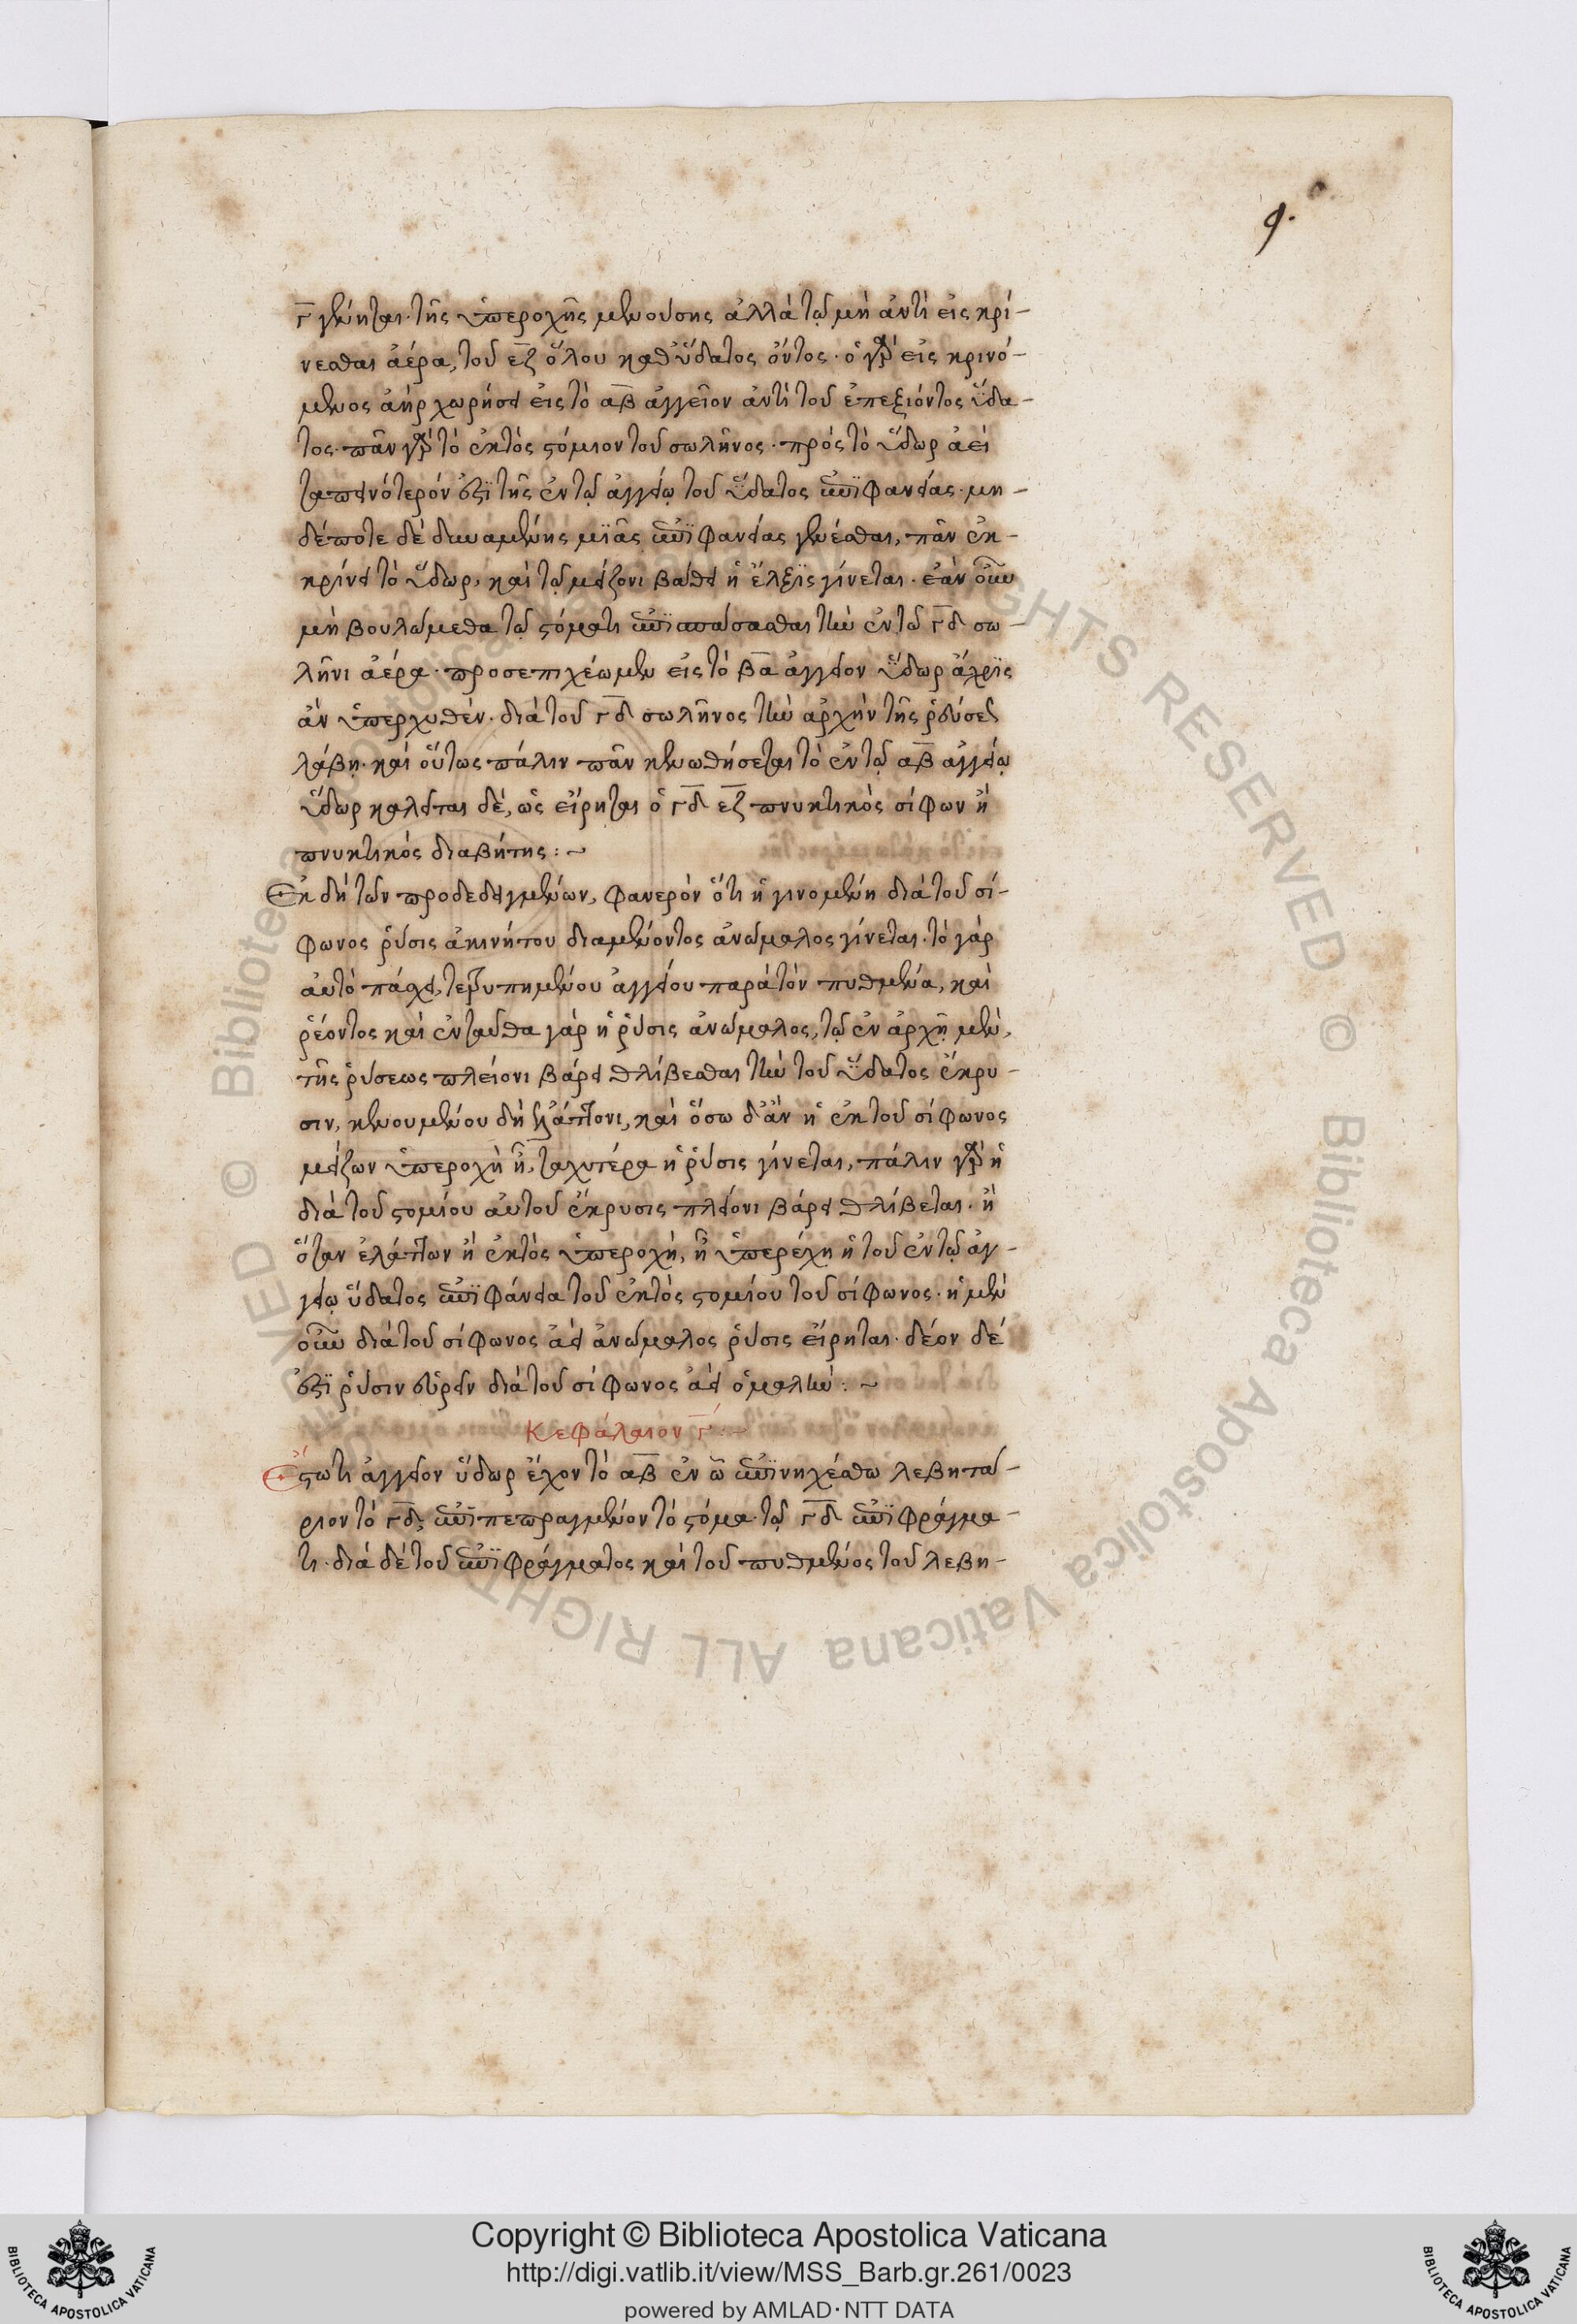 9.
γ̅ γένηται· τῆς ὑπεροχῆς μενούσης ἀλλὰ τῷ μὴ ἀντὶ εἰς κρί-
νεσθαι ἀέρα, τοῦ ε̅ζ̅ ὅλου καθ' ὕδατος ὄντος· ὁ γὰρ εἰς κρινό-
μενος ἀὴρ χωρήσει εἰς τὸ α̅β̅ ἀγγεῖον ἀντὶ τοῦ ἐπεξιόντος ὕδα-
τος· πᾶν γὰρ τὸ ἐκτὸς στόμιον τοῦ σωλῆνος· πρὸς τὸ ὕδωρ ἀεὶ
ταπεινότερόν ἐστϊ τῆς ἐν τῷ ἀγγείῳ τοῦ ὕδατος ἐπϊφανείας· μη-
δέποτε δὲ δυναμένης μϊᾶς ἐπϊφανείας γενέσθαι, πᾶν ἐκ-
κρίνει τὸ ὕδωρ, καὶ τῷ μείζονι βάθει ἡ ἕλξϊς γίνεται. ἐὰν οὖν
μὴ βουλώμεθα τῷ στόματι ἐπισπάσασθαι τὸν ἐν τῷ γ̅δ̅ σω-
λῆνι ἀέρα· προσεπιχέωμεν εἰς τὸ β̅α̅ ἀγγεῖον ὕδωρ ἄχρϊς
ἂν ὑπερχυθὲν· διὰ τοῦ γ̅δ̅ σωλῆνος τὴν ἀρχὴν τῆς ῥεύσεως
λάβῃ· καὶ οὕτως πάλιν πᾶν κενωθήσεται τὸ ἐν τῷ α̅β̅ ἀγγείῳ
ὕδωρ καλεῖται δὲ, ὡς εἴρηται ὁ γ̅δ̅ ε̅ζ̅ πνυκτικὸς σίφων ἢ
πνυκτικὸς διαβήτης:~
Ἐκ δὴ τῶν προδεδειγμένων, φανερὸν ὅτι ἡ γινομένη διὰ τοῦ σί-
φωνος ῥύσις ἀκινήτου διαμένοντος ἀνώμαλος γίνεται. τὸ γὰρ
αὐτὸ πάσχει, τετρυπημένου ἀγγείου παρὰ τὸν πυθμένα, καὶ
ῥέοντος καὶ ἐνταῦθα γὰρ ἡ ῥύσις ἀνώμαλος, τῷ ἐν ἀρχῇ μὲν,
τῆς ῥύσεως πλείονι βάρει θλίβεσθαι τὴν τοῦ ὕδατος ἔκρυ-
σιν, κενουμένου δὴ ἐλάττονι, καὶ ὅσω δ' ἂν ἡ ἐκ τοῦ σίφωνος
μείζων ὑπεροχὴ ᾖ, ταχυτέρα ἡ ῥύσις γίνεται, πάλιν γὰρ ἡ
διὰ τοῦ στομίου αὐτοῦ ἔκρυσις πλείονι βάρει θλίβεται. ἢ
ὅταν ἐλάττων ἡ ἐκτὸς ὑπεροχὴ, ᾗ ὑπερέχῃ ἡ τοῦ ἐν τῷ ἀγ-
γείῳ ὕδατος ἐπϊφάνεια τοῦ ἐκτὸς στομίου τοῦ σίφωνος. ἡ μὲν
οὖν διὰ τοῦ σίφωνος ἀεὶ ἀνώμαλος ῥύσις εἴρηται. δέον δέ
ἐστϊ ῥύσιν εὑρεῖν διὰ τοῦ σίφωνος ἀεὶ ὁμαλὴν:~
Κεφάλαιον γ̅:-
Ἔστω τι ἀγγεῖον ὕδωρ ἔχον τὸ α̅β̅ ἐν ᾧ ἐπϊνηχέσθω λεβητά-
ριον τὸ γ̅δ̅, ἐπϊπεπραγμένον τὸ στόμα· τῷ γ̅δ̅ ἐπϊφράγμα-
τι· διὰ δὲ τοῦ ἐπϊφράγματος καὶ τοῦ πυθμένος τοῦ λεβη-
Copyright © Biblioteca Apostolica Vaticana
http://digi.vatlib.it/view/MSS_Barb.gr.261/0023
powered by AMLAD·NTT DATA
BIBLIOTECA APOSTOLICA VATICANA
BIBLIOTECA APOSTOLICA VATICANA